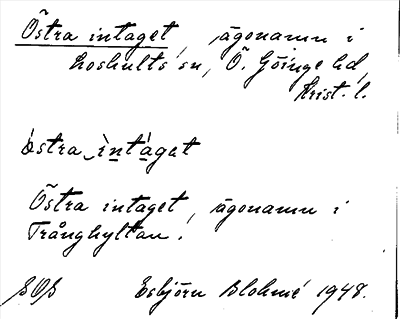 Östra intaget, ägonamn i
Loshults sn, Ö. Göinge hd,
Krist. l.
östra intaget
Östra intaget, ägonamn i
Trånghyltan.
Esbjörn Blohmé 1948.